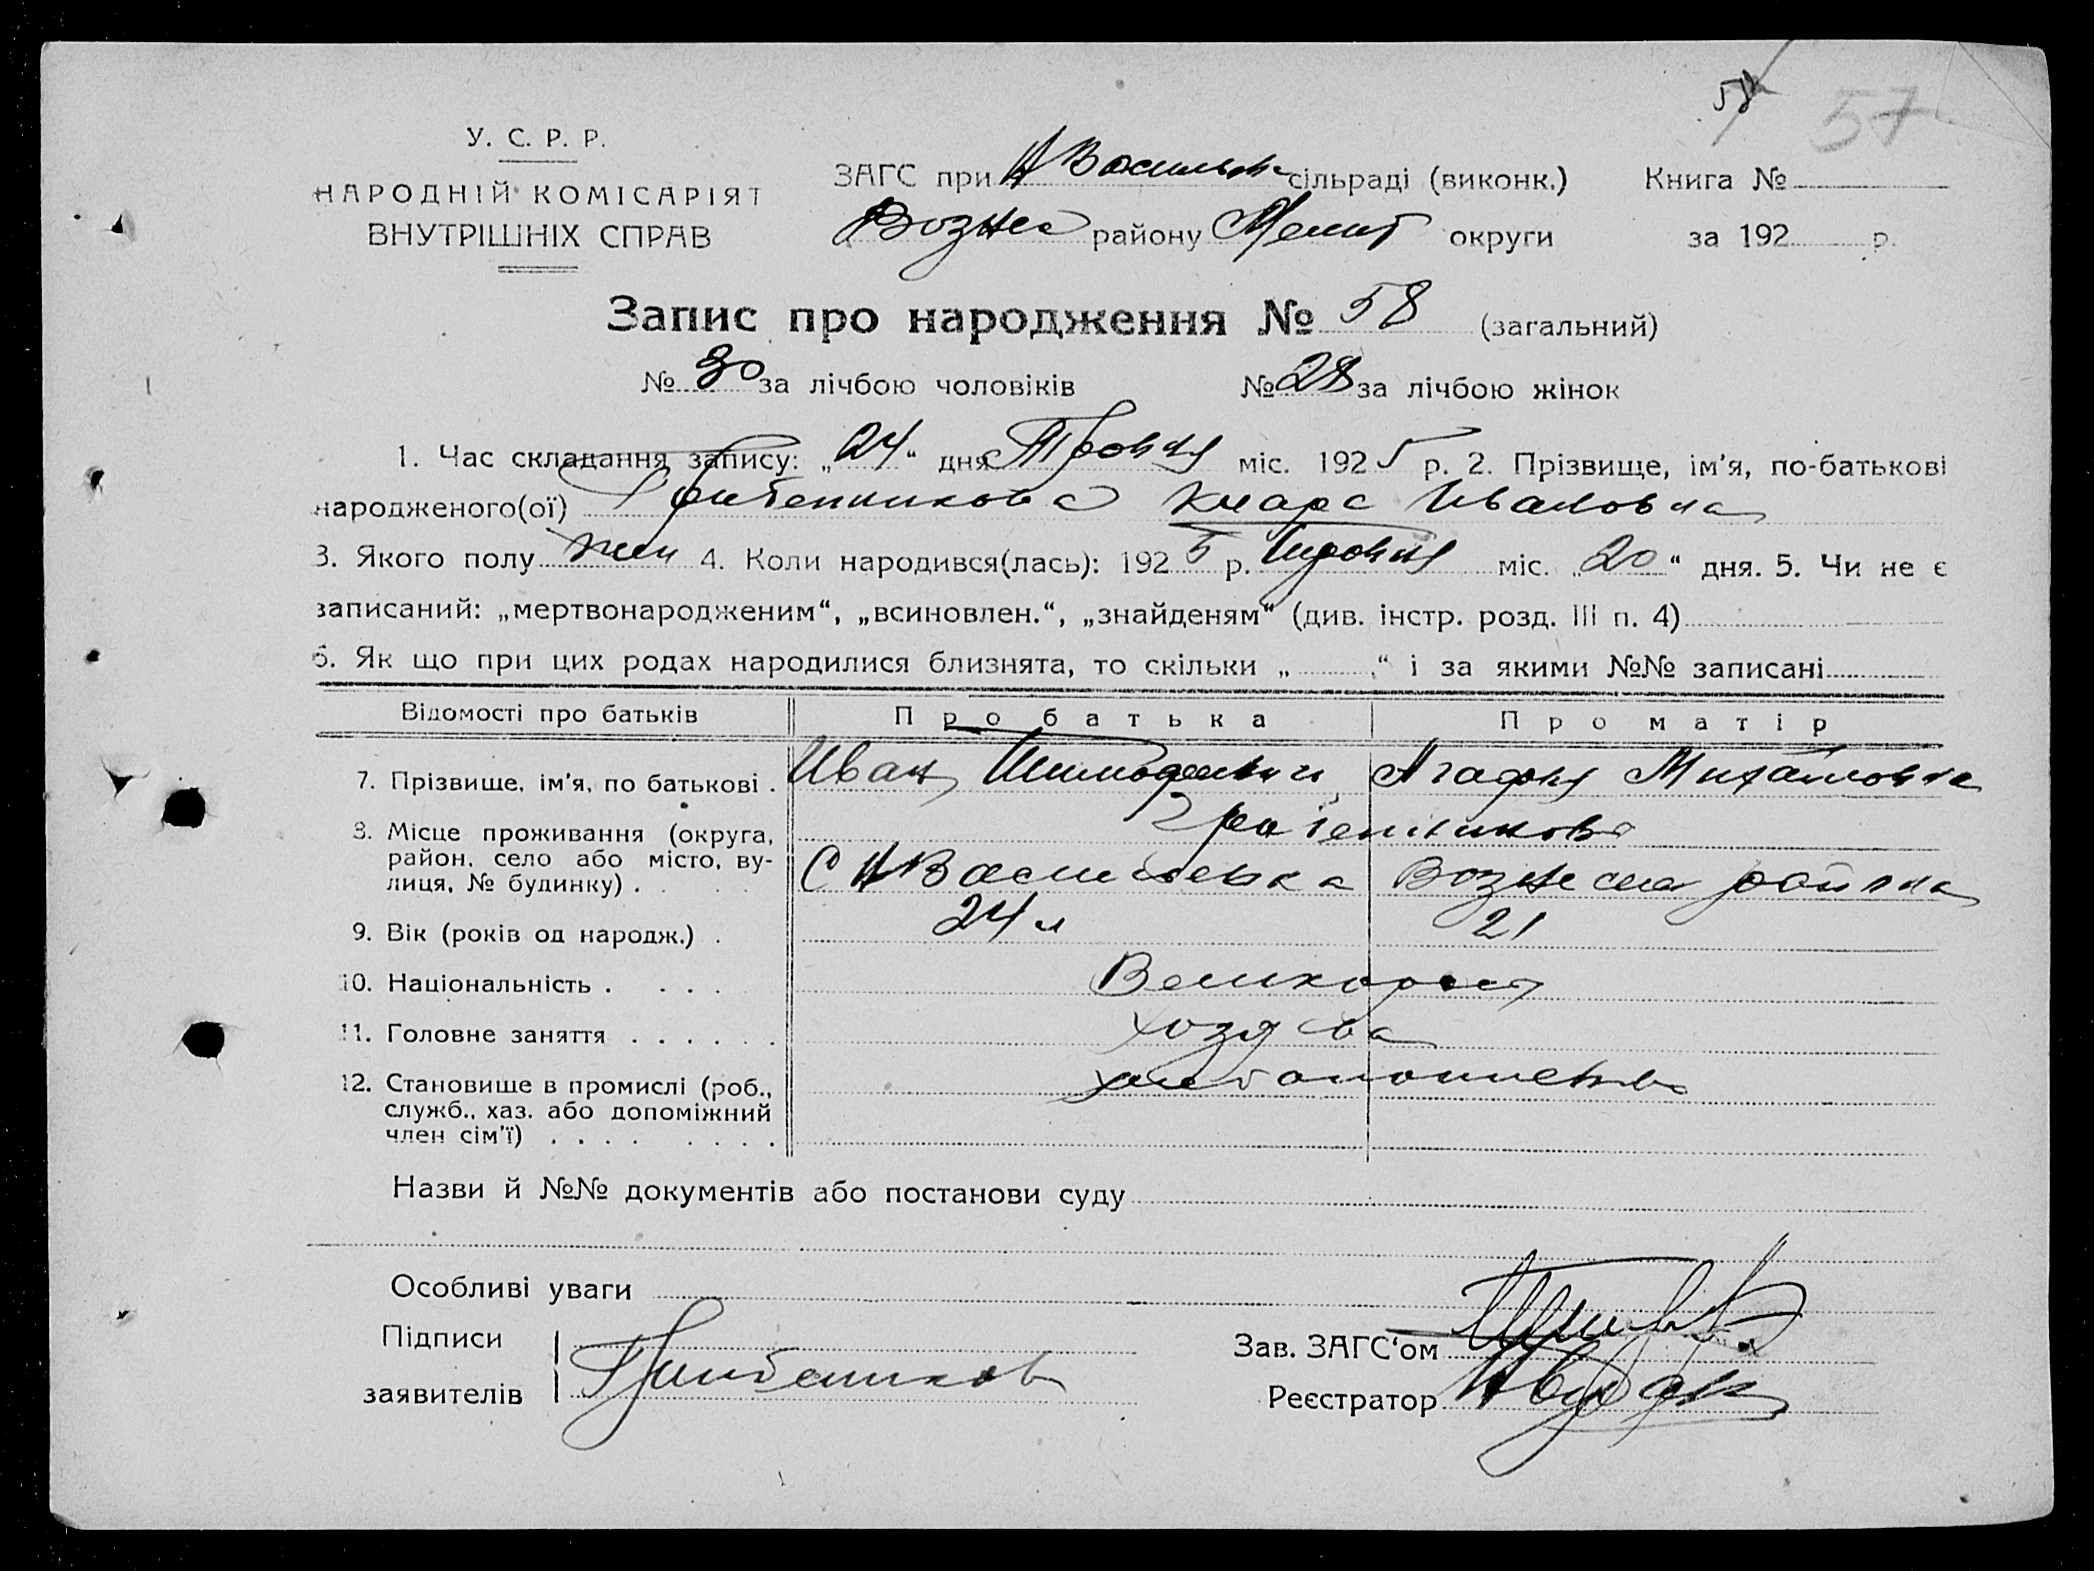 58 57
У. С. Р. Р.
НАРОДНІЙ КОМІСАРІЯТ
ВНУТРІШНІХ СПРАВ
ЗАГС при Н Васильев сільраді (виконк.) Книга №
Вознес району Мелит округи за 192 р.
Запис про народження № 58 (загальний)
№ 30 за лічбою чоловіків № 28 за лічбою жінок
1. Час складання запису: „24“ дня міс. 1925 р. 2. Прізвище, ім’я, по-батькові
народженого(ої) Клара Ивановна
3. Якого полу жен 4. Коли народився(лась): 1925 р. міс. „20“ дня. 5. Чи не є
записаний: „мертвонародженим“, „всиновлен.“, „знайденям“ (див. інстр. розд. III п. 4)
6. Як що при цих родах народилися близнята, то скільки „ “ і за якими №№ записані
Відомості про батьків Про батька Про матір
7. Прізвище, ім’я, по батькові . Иван Агафия Михайловна
8. Місце проживання (округа,
район, село або місто, ву-
лиця, № будинку) . С Н Васильевка Вознесен района
9. Вік (років од народж.) . 24 л 21
10. Національність . . . . Великорос
11. Головне заняття . . . . . . хозяйва
12. Становище в промислі (роб.,
служб., хаз. або допоміжний
член сім’ї) . . . . . . . .
Назви й №№ документів або постанови суду
Особливі уваги
Підписи
заявителів
Зав. ЗАГС‘ом
Реєстратор